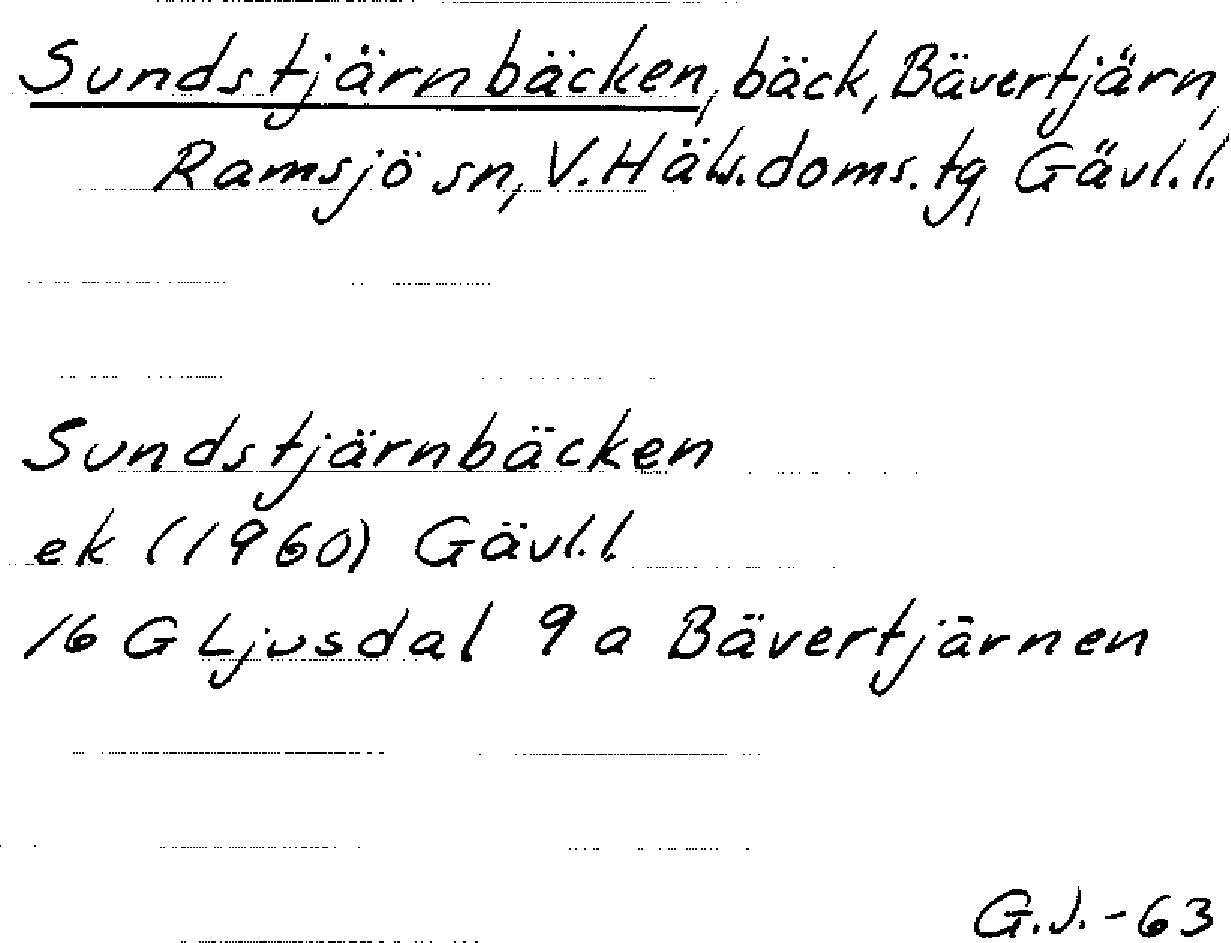 Sundstjärnbäcken, bäck, Bävertjärn,
Ramsjö sn, V. Häls. doms. tg, Gävl. l.
Sundstjärnbäcken
ek (1960) Gävl. l
16 G Ljusdal 9 a Bävertjärnen
G.J. - 63